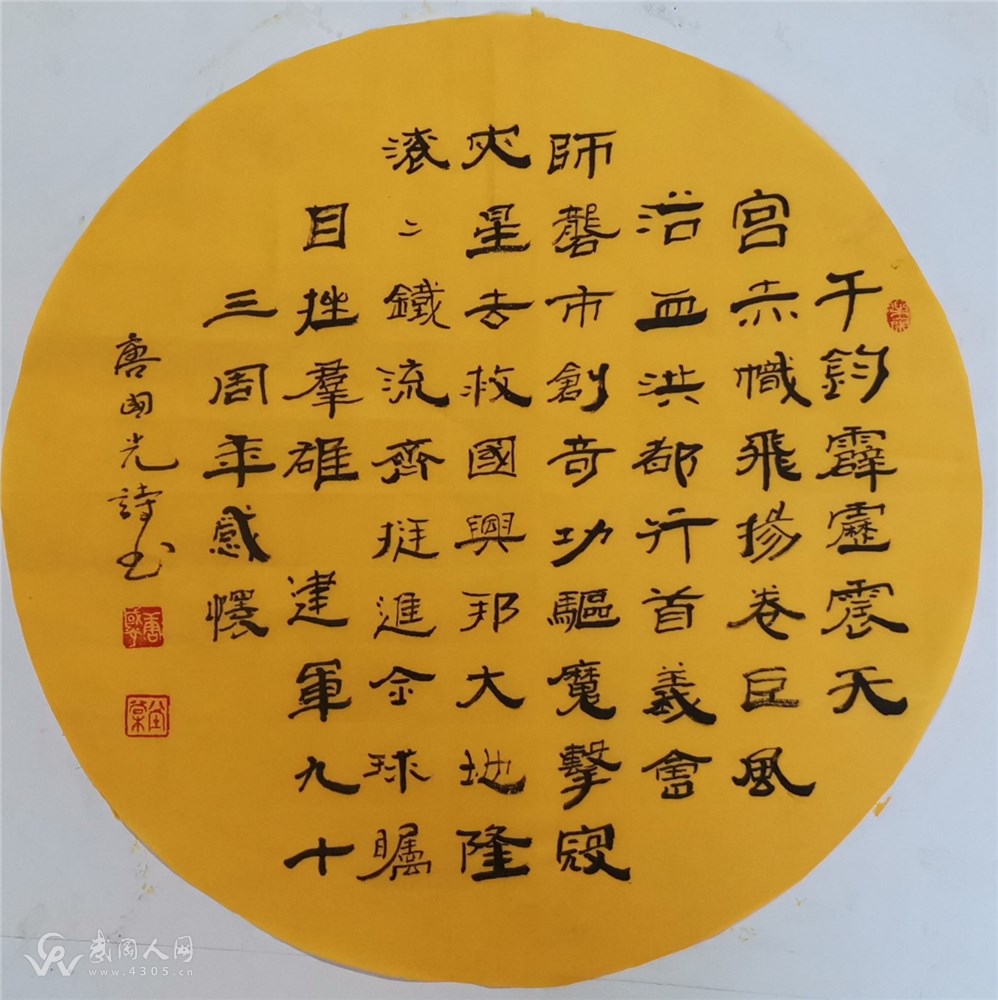 千鈞霹靂震天
宫赤幟飛揚卷巨風
浴血洪都行首義會
師礱市創奇功驅魔擊寇
灾星去救國興邦大地隆
滚〻鐵流齊挺進全球矚
目挫羣雄 建軍九十
三周年感懷
唐國光詩书
武冈人网
www.4305.cn